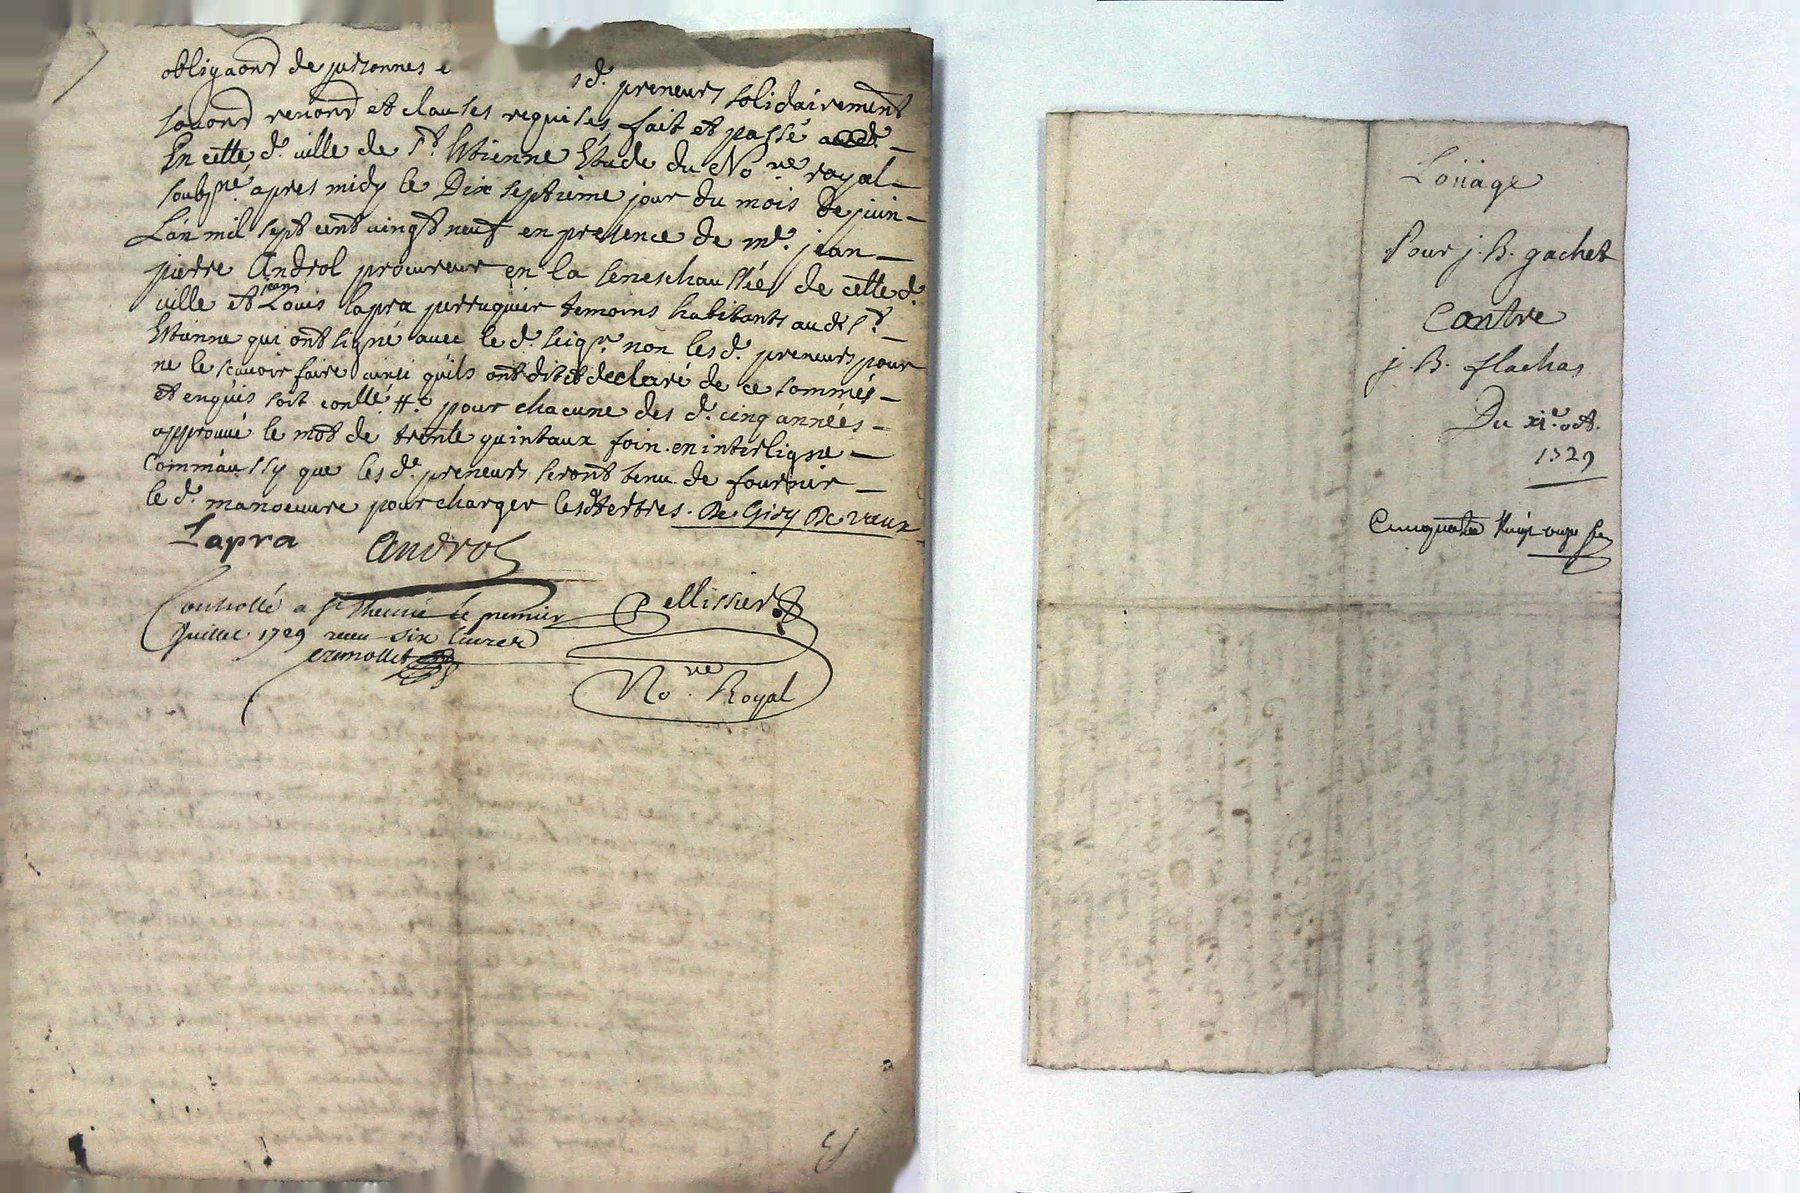 obligaons de personnes e sd. preneurs solidairement
soubmons renons et clauses requises fait et passé
En cette d. ville de St. Etienne Etude du Nore royal
soubsné apres midy le Dix septieme jour du mois de juin
L'an mil sept cent vingt neuf en presence de me. jean
pierre Androl procureur en la seneschaussée de cette d.
ville et jean Louis Lapra perruquier temoins habitants aud. St.
Etienne qui ont signé avec le d. seigr. non les d. preneurs pour
ne le scavoir faire ainsi qu'ils ont dit et declaré de ce sommés
et enquis soit conllé. pour chacune des d. cinq années
approuvé le mot de trente quintaux foin en interligne
comm'aussy que les d. preneurs seront tenu de fournir
le d. manoeuvre pour charger lesd. terres. De Giry De vaux
Lapra Androl
Controllé a St Etienne le premier Pellissier
Juillet 1729 receu six livres
cremollet
Nore Royal
Loüage
Pour j. B. gachet
Contre
j. B. flachas
Du xie. oct.
1729